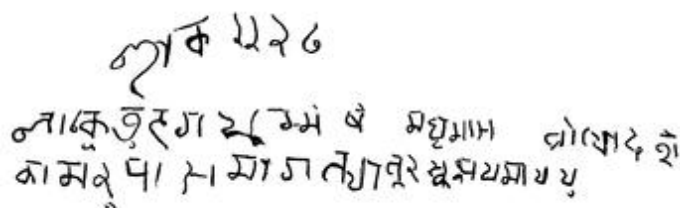 শাক ১১২৭
শাকে তুৰগযুগ্মেশে মধুমাস ত্ৰয়োদশে
কামৰূপং সমাগত্য তুৰুষ্কাঃ ক্ষয়মাযযুঃ